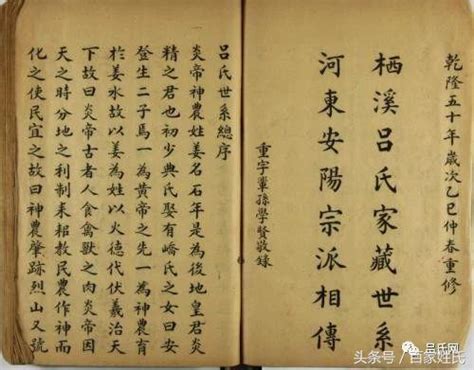 乾隆五十年歲次乙巳仲春重修
栖溪呂氏家藏世系
河東安陽宗派相傳
重字輩孫學賢敬錄
呂氏世系總序
炎帝神農姓姜名石年是為後地皇君炎
精之君也初少典氏娶有嶠氏之女曰安
登生二子焉一為黃帝之先一為神農育
於姜水故以姜為姓以火德代伏羲治天
下故曰炎帝古者人食禽獸之肉炎帝因
天之時分地之利制耒耜教民農作神而
化之使民宜之故曰神農肇跡烈山又號
吕氏网
头条号／百家姓氏